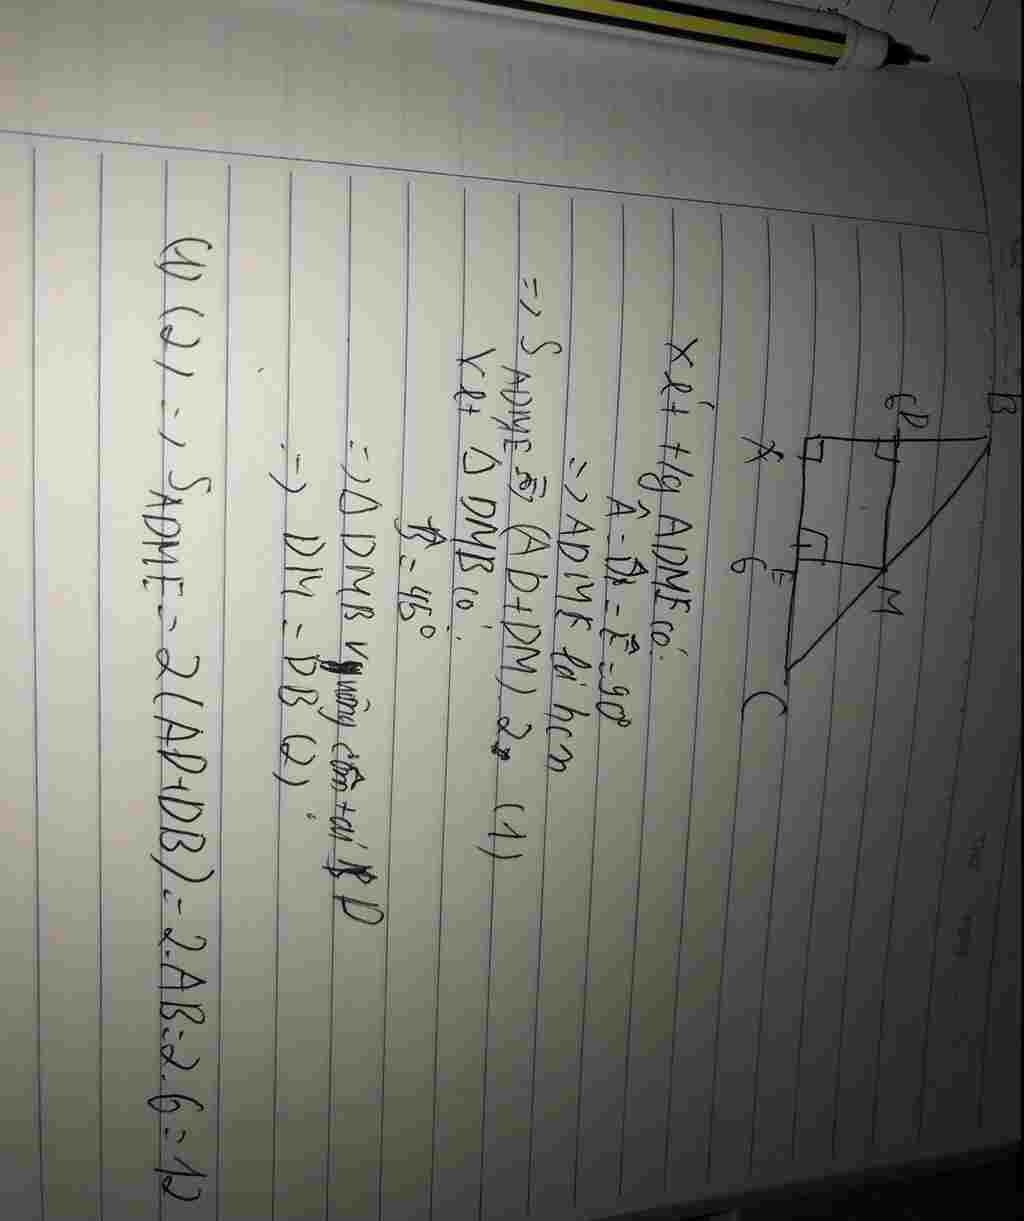 B
6 D
M
A
6 E
C
Xét tg ADME có:
Â = D̂ = Ê = 90°
=> ADME là hcn
=> S ADME = (AD+DM).2 (1)
Xét Δ DMB có:
B̂ = 45°
=> Δ DMB vuông cân tại D
=> DM = DB (2)
(1) (2) => S ADME = 2(AD+DB) = 2.AB = 2.6 = 12